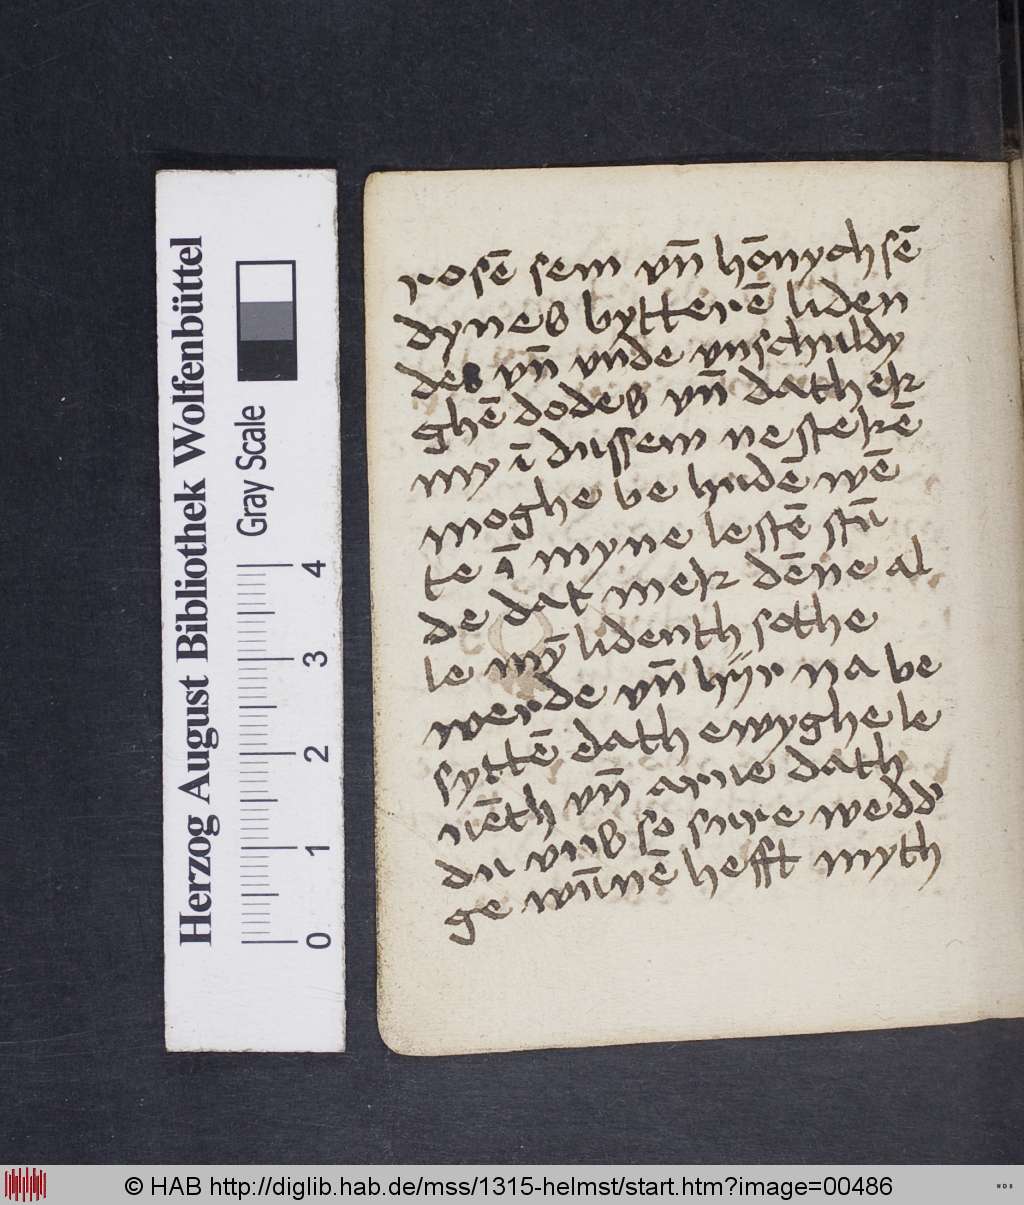 rosē sem vn̄ hōnychsē
dynes bytterē liden
des vn̄ vnde vnschuldy
ghē dodes vn̄ dath ek
my ī dussem nestekē
moghe be hudē wē
te ī myne lestē stū
de dat mek dēne al
le mȳ lidenth sothe
werde vn̄ hÿr na be
syttē dath ewyghe le
uēth vn̄ arue dath
du vns so sure wedd'
ge wūnē hefft myth
Herzog August Bibliothek Wolfenbüttel
Gray Scale
0 1 2 3 4
© HAB http://diglib.hab.de/mss/1315-helmst/start.htm?image=00486